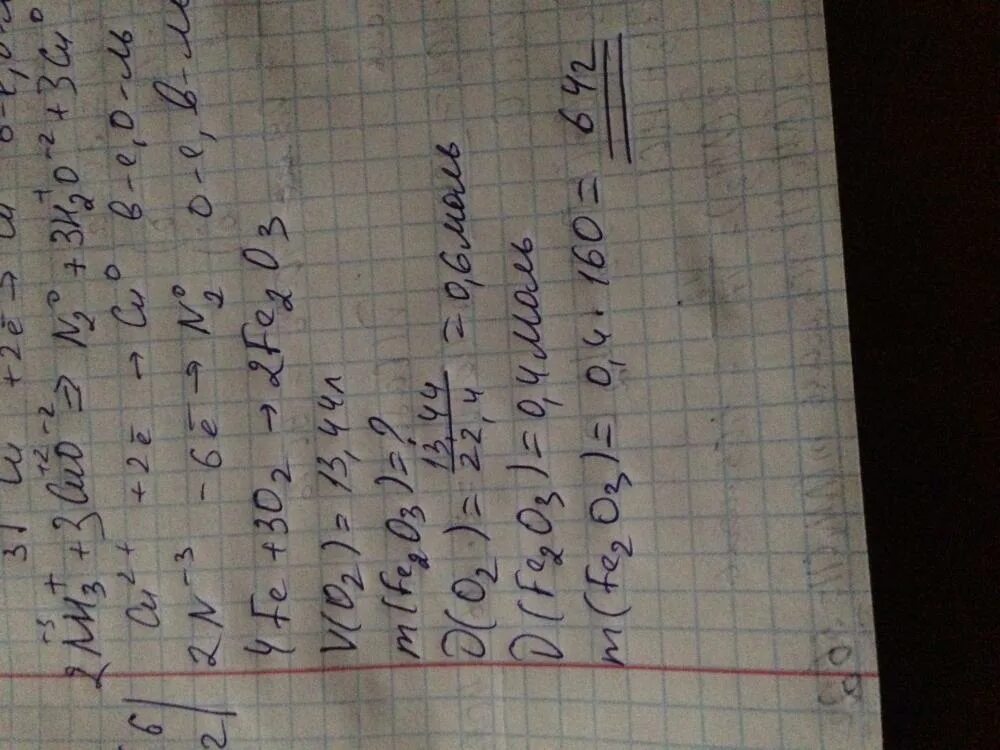 3) Cu +2e̅ → Cu
2N⁻³H₃⁺ + 3Cu⁺²O⁻² ⇒ N₂⁰ + 3H₂⁺O⁻² + 3Cu⁰
Cu²⁺ +2e̅ → Cu⁰ в-е, о-ль
2N⁻³ -6e̅ → N₂⁰ о-е, в-ль
6
2
4Fe + 3O₂ → 2Fe₂O₃
V(O₂) = 13,44л
m(Fe₂O₃) = ?
ν(O₂) = 13,44/22,4 = 0,6моль
ν(Fe₂O₃) = 0,4моль
m(Fe₂O₃) = 0,4·160 = 64г